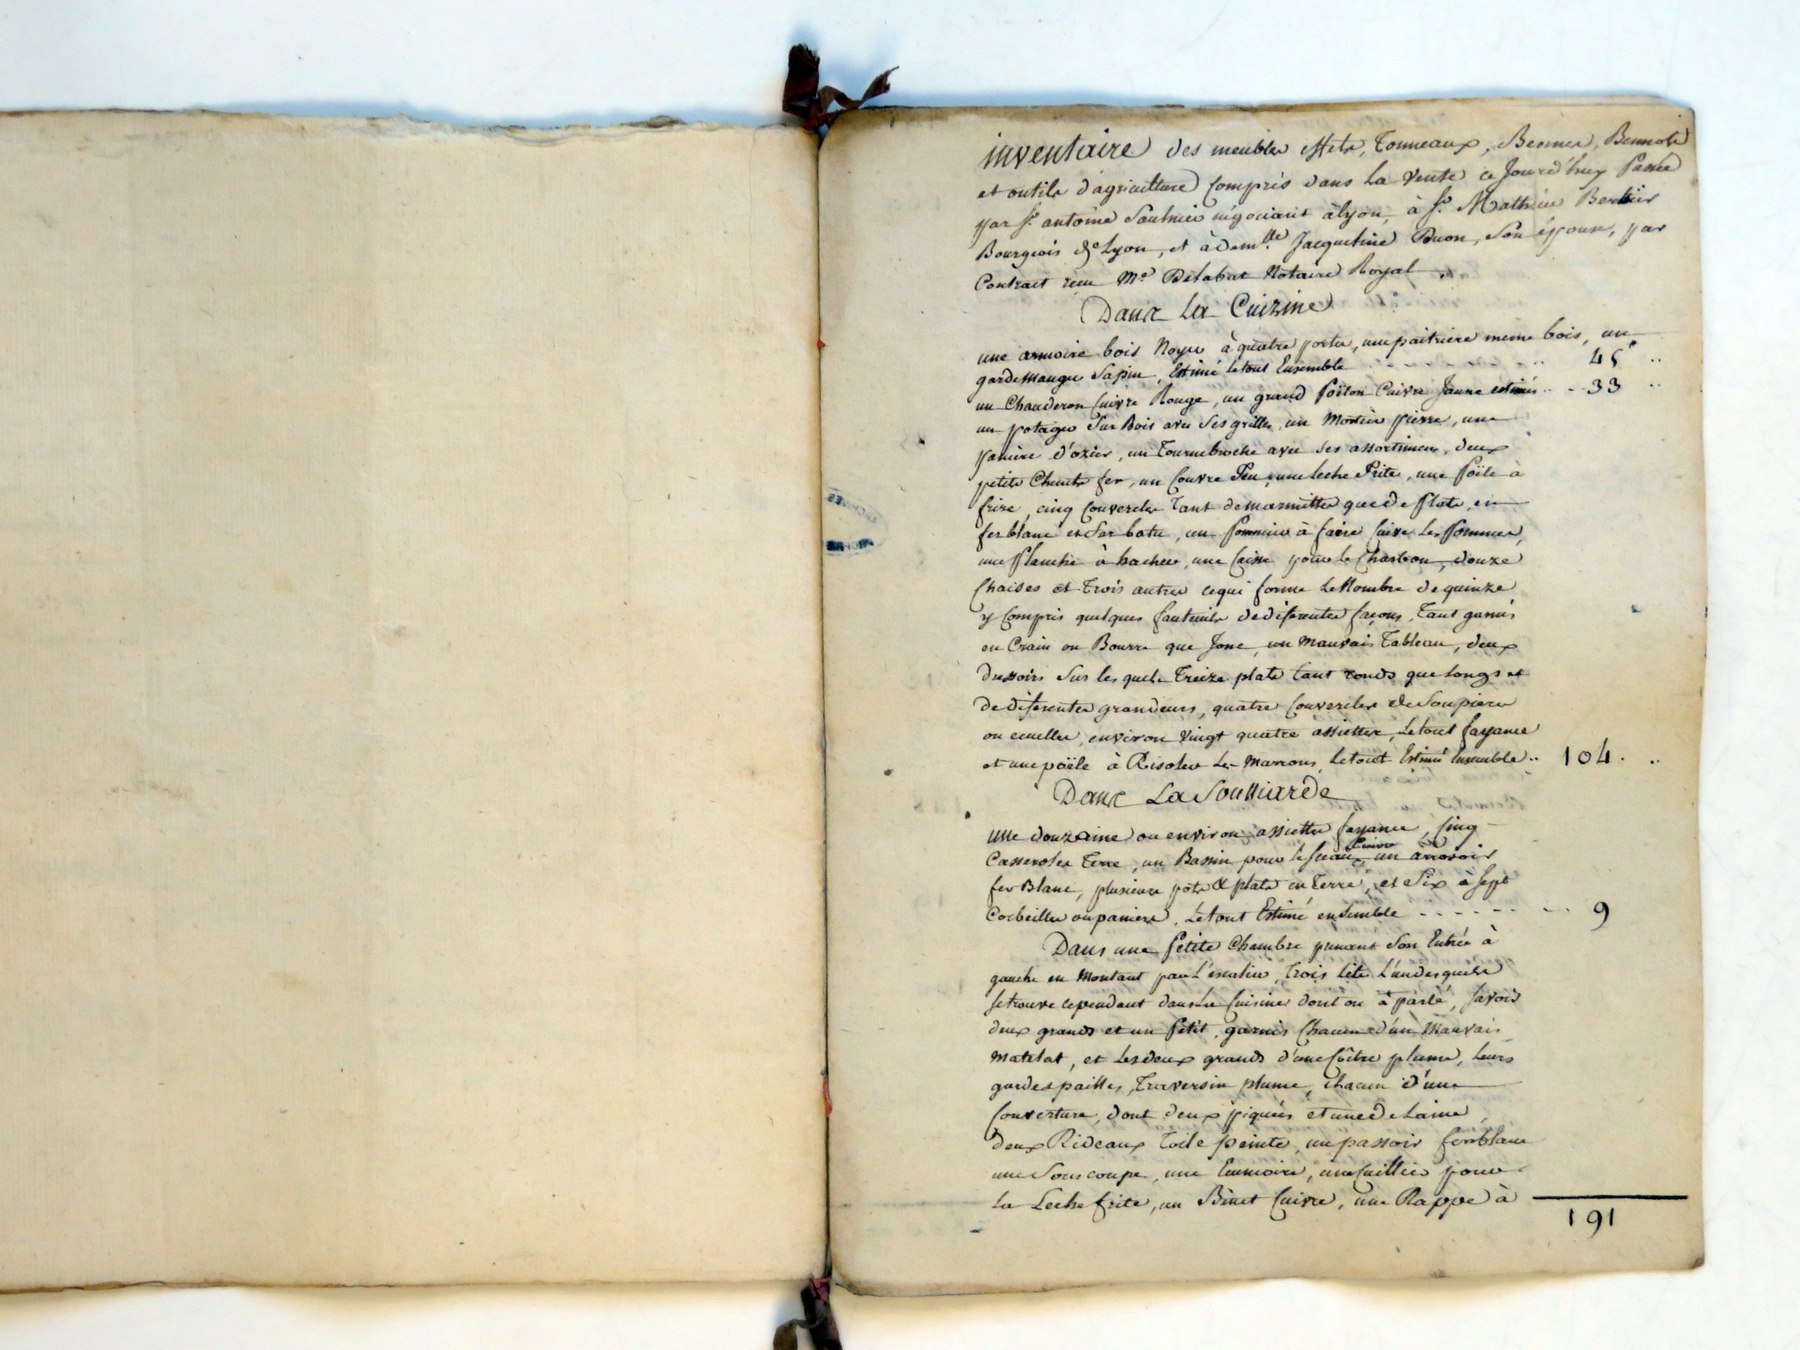 inventaire des meubles effets, Tonneaux, Bennes, Bennots
et outils d'agriculture compris dans la vente ce Jourd'huy Passée
par Sr. antoine Saulnier négociant à lyon, à Sr. Mathieu Berthier
Bourgeois de Lyon, et à demlle. Jacqueline Buon, son épouse, par
Contract recu Me. Delabat Notaire Royal.
Dans la Cuizine
une armoire bois Noyer à quatre portes, une paitriere meme bois, un
gardemanger Sapin, Estimé le tout Ensemble 45
un Chauderon Cuivre Rouge, un grand Poilon Cuivre Jaune estimés 33
un potager Sur Bois avec Ses grilles, un Mortier pierre, une
paniere d'ozier, un Tournebroche avec ses assortimens, deux
petits Chenets fer, un Couvre Feu, une leche Frite, une Poile à
frire, cinq Couvercles Tant de marmittes que de Plats, en
fer blanc et Fer batu, un Pommier à faire Cuire les Pommes,
une Planche à hacher, une Caisse pour le Charbon, douze
Chaises et Trois autres ce qui forme le Nombre de quinze
y Compris quelques fauteuils de diferentes façons, Tant garnis
en Crain ou Bourre que Jonc, un Mauvais Tableau, deux
dressoirs Sur les quels Treize plats tant ronds que longs et
de diferentes grandeurs, quatre Couvercles de Soupieres
ou ecuelles, environ vingt quatre assiettes, Le tout fayance
et une poële à Risoler les Marrons, le tout Estimé Ensemble 104
Dans La Souillarde
Une douzaine ou environ assiettes fayance, Cinq
Casseroles Terre, un Bassin pour le sceau Cuivre un arrosoir
fer Blanc, plusieurs pots & plats en Terre, et Six à Sept
Corbeilles ou paniers, Le tout Estimé ensemble 9
Dans une Petite Chambre prenant Son Entrée à
gauche en Montant par L'escalier, Trois lits L'un desquels
se trouve cependant dans la Cuisine dont on à parlé, Savoir
deux grands et un Petit, garnis Chacun d'un Mauvais
Matelat, et les deux grands d'une Coître plume, leurs
gardespailles, Traversin plume, chacun d'une
Couverture, dont deux piqués et une de Laine,
deux Rideaux Toile peinte, un passoir ferrblanc
une Souscoupe, une Ecumoire, une Cuillier pour
la Leche frite, un Binet Cuivre, une Rappe à
191